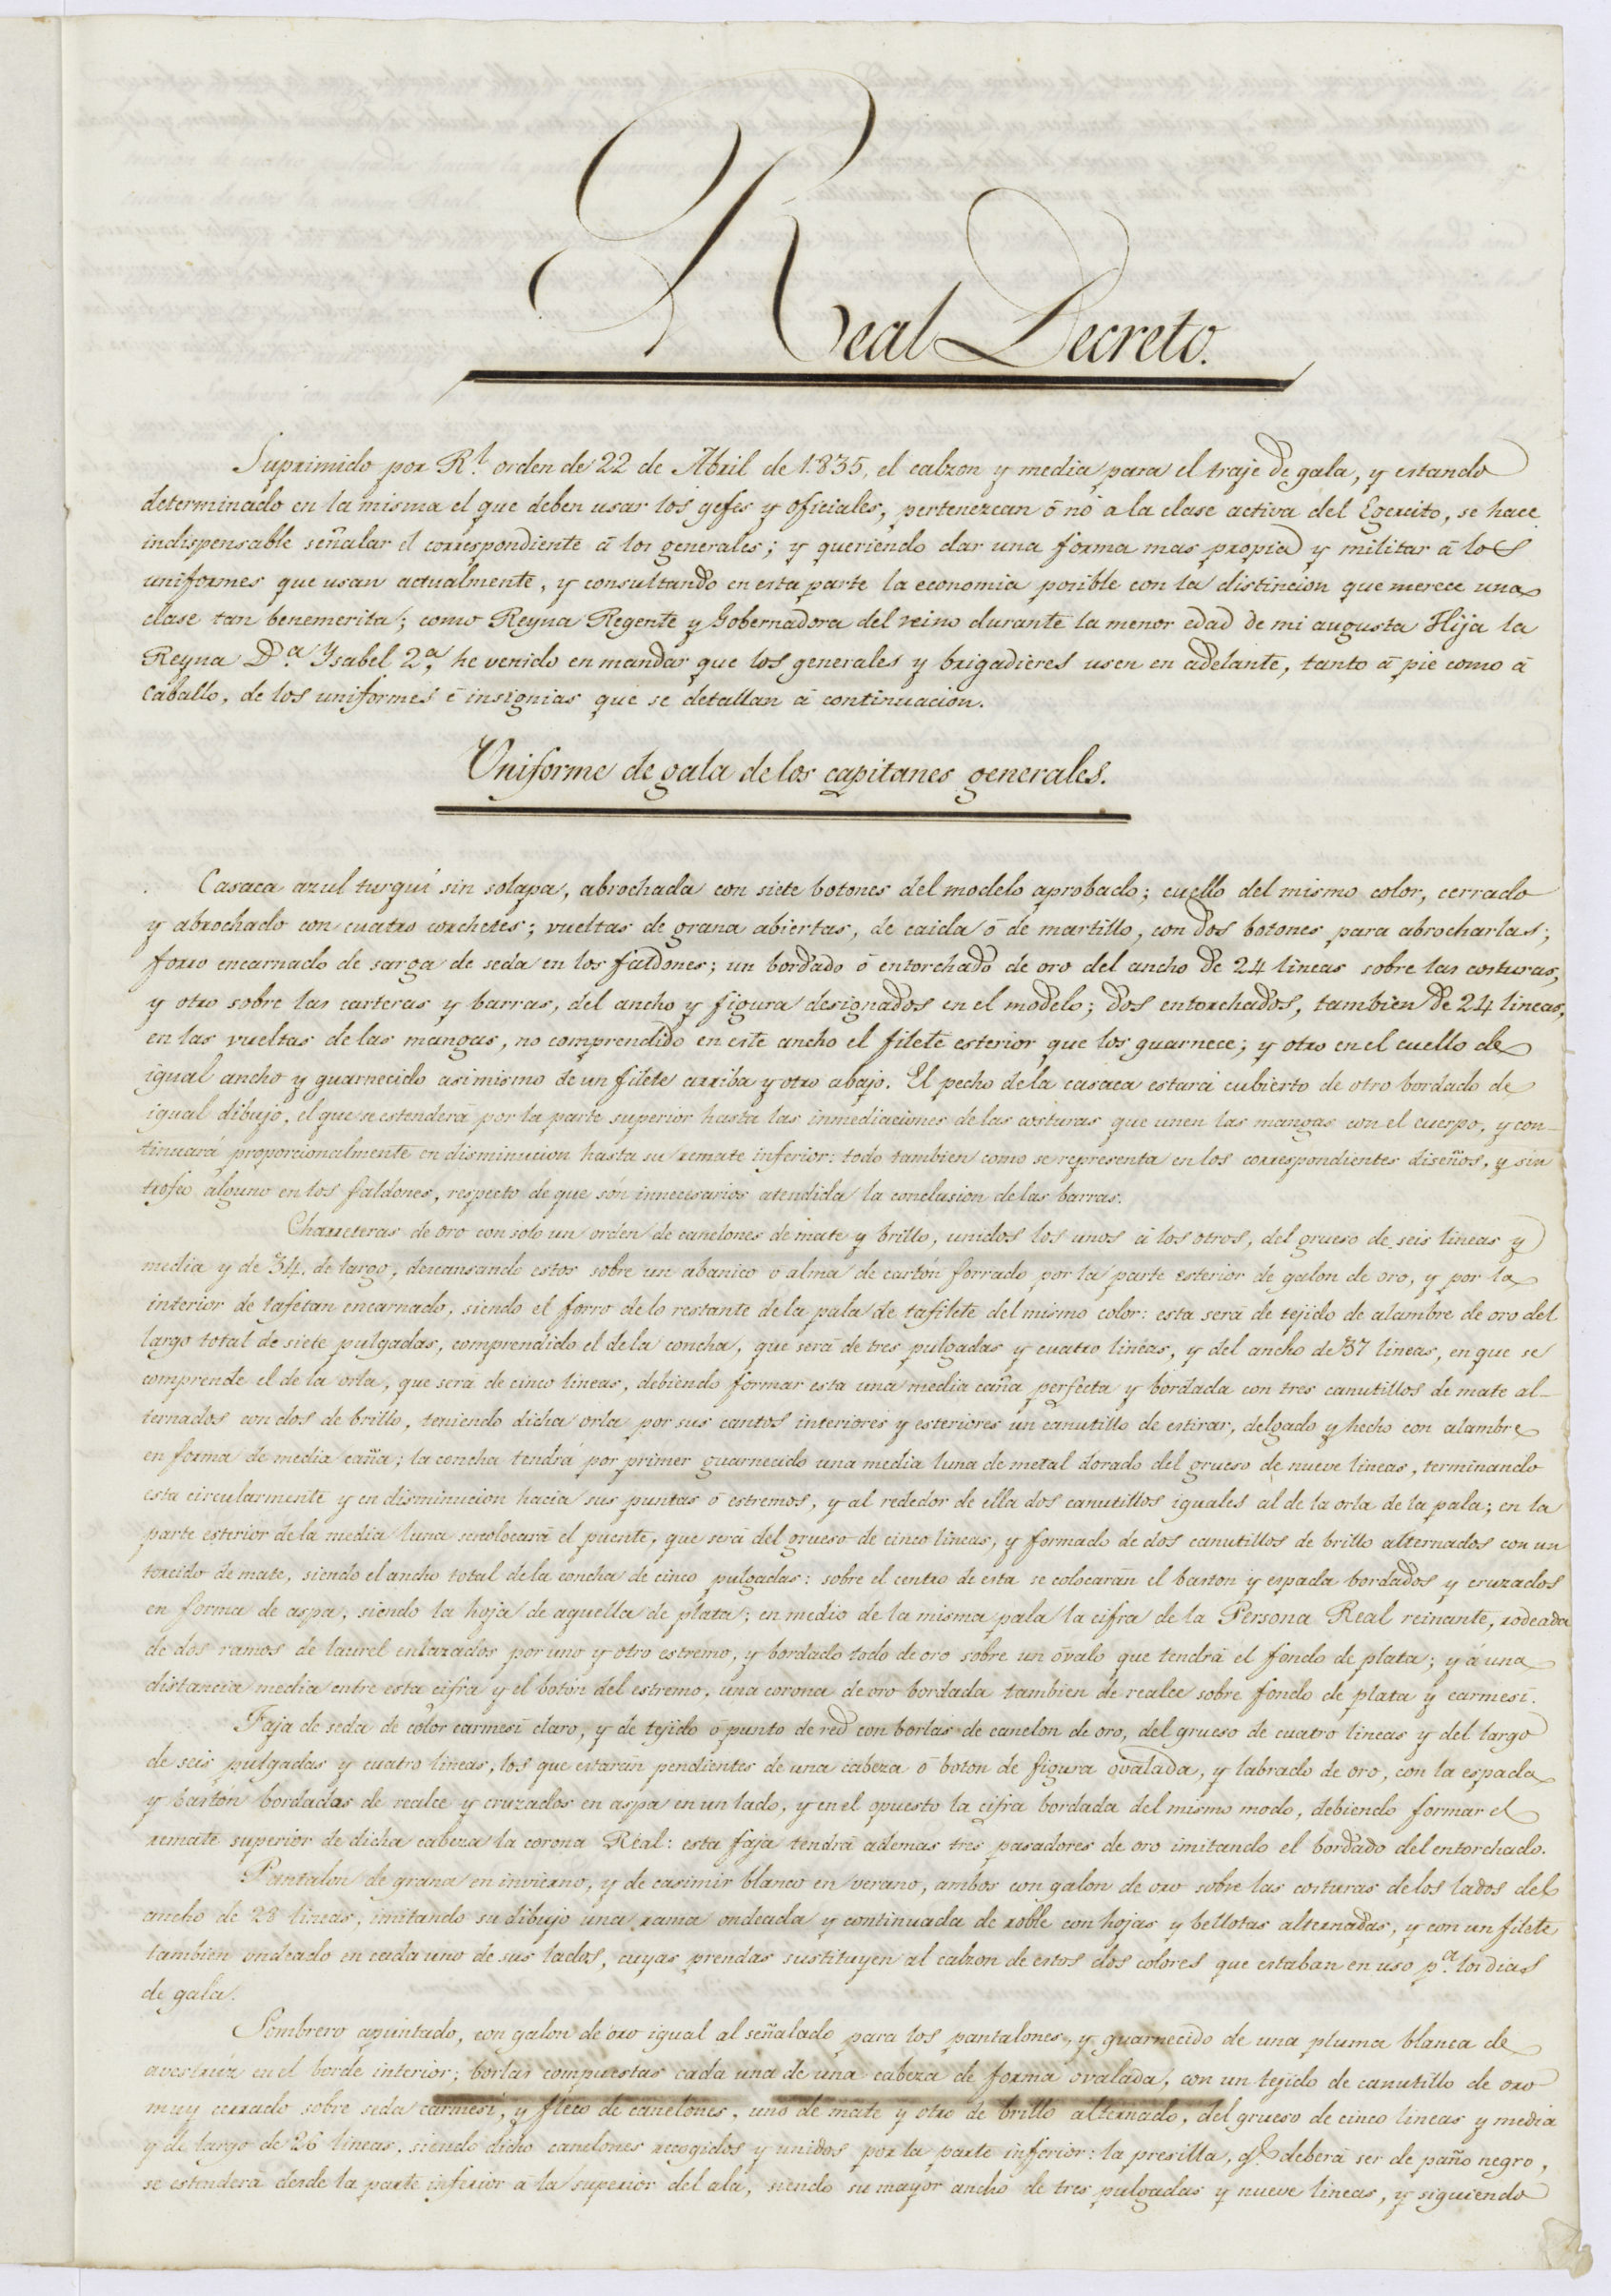 Real Decreto.
Suprimido por R.l orden de 22 de Abril de 1835, el calzon y media para el traje de gala, y estando
determinado en la misma el que deben usar los gefes y oficiales, pertenezcan ó nó a la clase activa del Egercito, se hace
indispensable señalar el correspondiente á los generales; y queriendo dar una forma mas propia y militar á los
uniformes que usan actualmente, y consultando en esta parte la economia posible con la distincion que merece una
clase tan benemerita; como Reyna Regente y Gobernadora del reino durante la menor edad de mi augusta Hija la
Reyna D.a Ysabel 2.a, he venido en mandar que los generales y brigadieres usen en adelante, tanto á pie como á
caballo, de los uniformes é insignias que se detallan á continuacion.
Uniforme de gala de los capitanes generales.
Casaca azul turquí sin solapa, abrochada con siete botones del modelo aprobado; cuello del mismo color, cerrado
y abrochado con cuatro corchetes; vueltas de grana abiertas, de caida ó de martillo, con dos botones para abrocharlas;
forro encarnado de sarga de seda en los faldones; un bordado ó entorchado de oro del ancho de 24 lineas sobre las costuras,
y otro sobre las carteras y barras, del ancho y figura designados en el modelo; dos entorchados, tambien de 24 lineas,
en las vueltas de las mangas, no comprendido en este ancho el filete esterior que los guarnece; y otro en el cuello de
igual ancho y guarnecido asimismo de un filete arriba y otro abajo. El pecho de la casaca estará cubierto de otro bordado de
igual dibujo, el que se estenderá por la parte superior hasta las inmediaciones de las costuras que unen las mangas con el cuerpo, y con-
tinuará proporcionalmente en disminucion hasta su remate inferior: todo tambien como se representa en los correspondientes diseños, y sin
trofeo alguno en los faldones, respecto de que són innecesarios atendida la conclusion de las barras.
Charreteras de oro con solo un orden de canelones de mate y brillo, unidos los unos á los otros, del grueso de seis lineas y
media y de 34. de largo, descansando estos sobre un abanico o alma de cartón forrado por la parte esterior de galon de oro, y por la
interior de tafetan encarnado, siendo el forro de lo restante de la pala de tafilete del mismo color: esta será de tejido de alambre de oro del
largo total de siete pulgadas, comprendido el de la concha, que será de tres pulgadas y cuatro lineas, y del ancho de 37 lineas, en que se
comprende el de la orla, que será de cinco lineas, debiendo formar esta una media caña perfecta y bordada con tres canutillos de mate al-
ternados con dos de brillo, teniendo dicha orla por sus cantos interiores y esteriores un canutillo de estirar, delgado y hecho con alambre
en forma de media caña; la concha tendrá por primer guarnecido una media luna de metal dorado del grueso de nueve lineas, terminando
esta circularmente y en disminucion hacia sus puntas ó estremos, y al rededor de ella dos canutillos iguales al de la orla de la pala; en la
parte esterior de la media luna se colocará el puente, que será del grueso de cinco lineas, y formado de dos canutillos de brillo alternados con un
torcido de mate, siendo el ancho total de la concha de cinco pulgadas: sobre el centro de esta se colocarán el baston y espada bordados y cruzados
en forma de aspa, siendo la hoja de aquella de plata; en medio de la misma pala la cifra de la Persona Real reinante, rodeada
de dos ramos de laurel enlazados por uno y otro estremo, y bordado todo de oro sobre un óvalo que tendrá el fondo de plata; y á una
distancia media entre esta cifra y el botón del estremo, una corona de oro bordada tambien de realce sobre fondo de plata y carmesí.
Faja de seda de color carmesí claro, y de tejido ó punto de red con borlas de canelon de oro, del grueso de cuatro lineas y del largo
de seis pulgadas y cuatro lineas, los que estarán pendientes de una cabeza ó botón de figura ovalada, y labrado de oro, con la espada
y bastón bordadas de realce y cruzados en aspa en un lado, y en el opuesto la cifra bordada del mismo modo, debiendo formar el
remate superior de dicha cabeza la corona Real: esta faja tendrá ademas tres pasadores de oro imitando el bordado del entorchado.
Pantalon de grana en invierno, y de casimir blanco en verano, ambos con galon de oro sobre las costuras de los lados del
ancho de 28 lineas, imitando su dibujo una rama ondeada y continuada de roble con hojas y bellotas alternadas, y con un filete
tambien ondeado en cada uno de sus lados, cuyas prendas sustituyen al calzon de estos dos colores que estaban en uso p.a los dias
de gala.
Sombrero apuntado, con galon de oro igual al señalado para los pantalones, y guarnecido de una pluma blanca de
avestruz en el borde interior; borlas compuestas cada una de una cabeza de forma ovalada, con un tejido de canutillo de oro
muy cerrado sobre seda carmesí, y fleco de canelones, uno de mate y otro de brillo alternado, del grueso de cinco lineas y media
y de largo de 26 lineas, siendo dicho canelones recogidos y unidos por la parte inferior: la presilla, q.e deberá ser de paño negro,
se estenderá desde la parte inferior á la superior del ala, siendo su mayor ancho de tres pulgadas y nueve lineas, y siguiendo